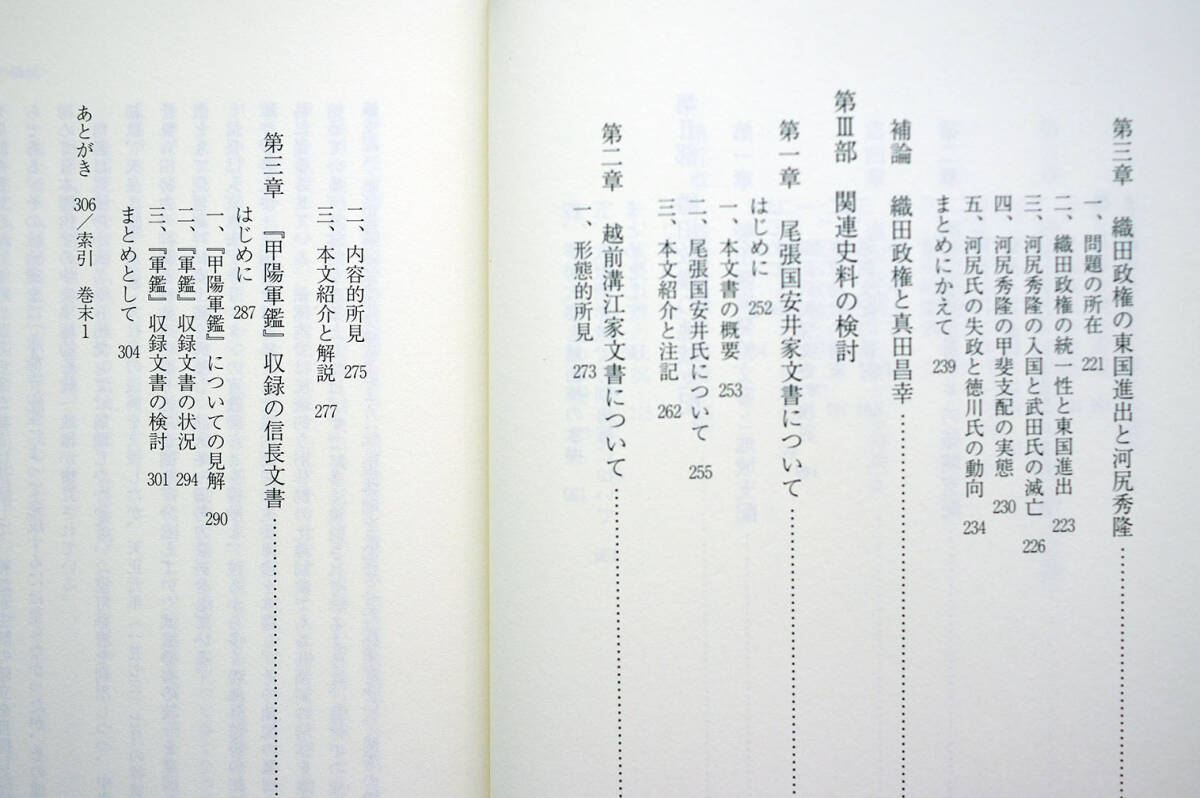 第三章 織田政権の東国進出と河尻秀隆……………………
一、問題の所在 221
二、織田政権の統一性と東国進出 223
三、河尻秀隆の入国と武田氏の滅亡 226
四、河尻秀隆の甲斐支配の実態 230
五、河尻氏の失政と徳川氏の動向 234
まとめにかえて 239
補論 織田政権と真田昌幸……………………
第Ⅲ部 関連史料の検討
第一章 尾張国安井家文書について……………………
はじめに 252
一、本文書の概要 253
二、尾張国安井氏について 255
三、本文紹介と注記 262
第二章 越前溝江家文書について……………………
一、形態的所見 273
二、内容的所見 275
三、本文紹介と解説 277
第三章 『甲陽軍鑑』収録の信長文書……………………
はじめに 287
一、『甲陽軍鑑』についての見解 290
二、『軍鑑』収録文書の状況 294
三、『軍鑑』収録文書の検討 301
まとめとして 304
あとがき 306／索引 巻末1